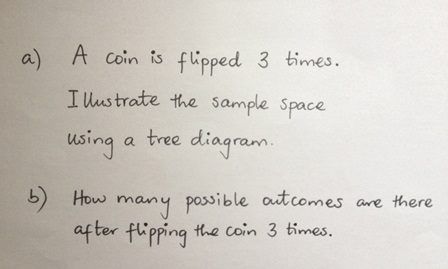 a) A coin is flipped 3 times.
Illustrate the sample space
using a tree diagram.
b) How many possible outcomes are there
after flipping the coin 3 times.